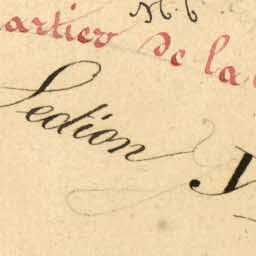 N.º 6
artier de la
Section